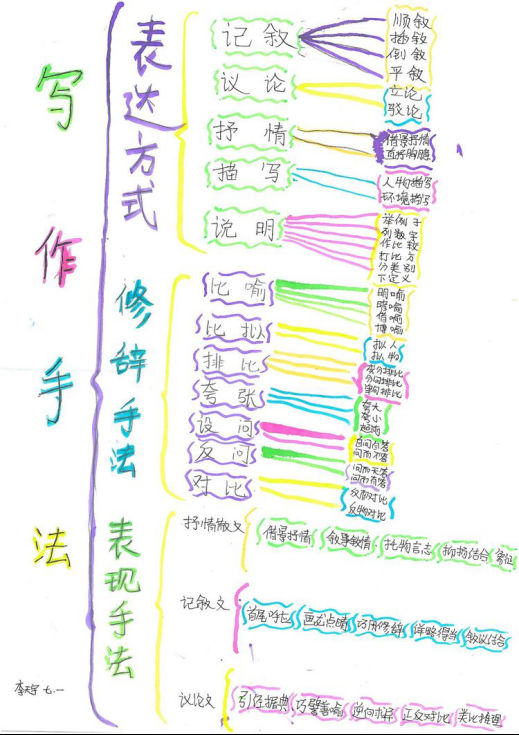 写作手法
表达方式
记叙
顺叙
插叙
倒叙
平叙
议论
立论
驳论
抒情
借景抒情
直抒胸臆
描写
人物描写
环境描写
说明
举例子
列数字
作比较
打比方
分类别
下定义
修辞手法
比喻
明喻
暗喻
借喻
博喻
比拟
拟人
拟物
排比
成分排比
分句排比
单句排比
夸张
夸大
夸小
超前
设问
自问自答
问而不答
反问
问而无答
问而有答
对比
反面对比
反物对比
表现手法
抒情散文
借景抒情
叙事叙情
托物言志
抑扬结合
象征
记叙文
首尾呼应
画龙点睛
巧用修辞
详略得当
叙议结合
议论文
引经据典
巧譬善喻
逆向求异
正反对比
类比推理
七.一